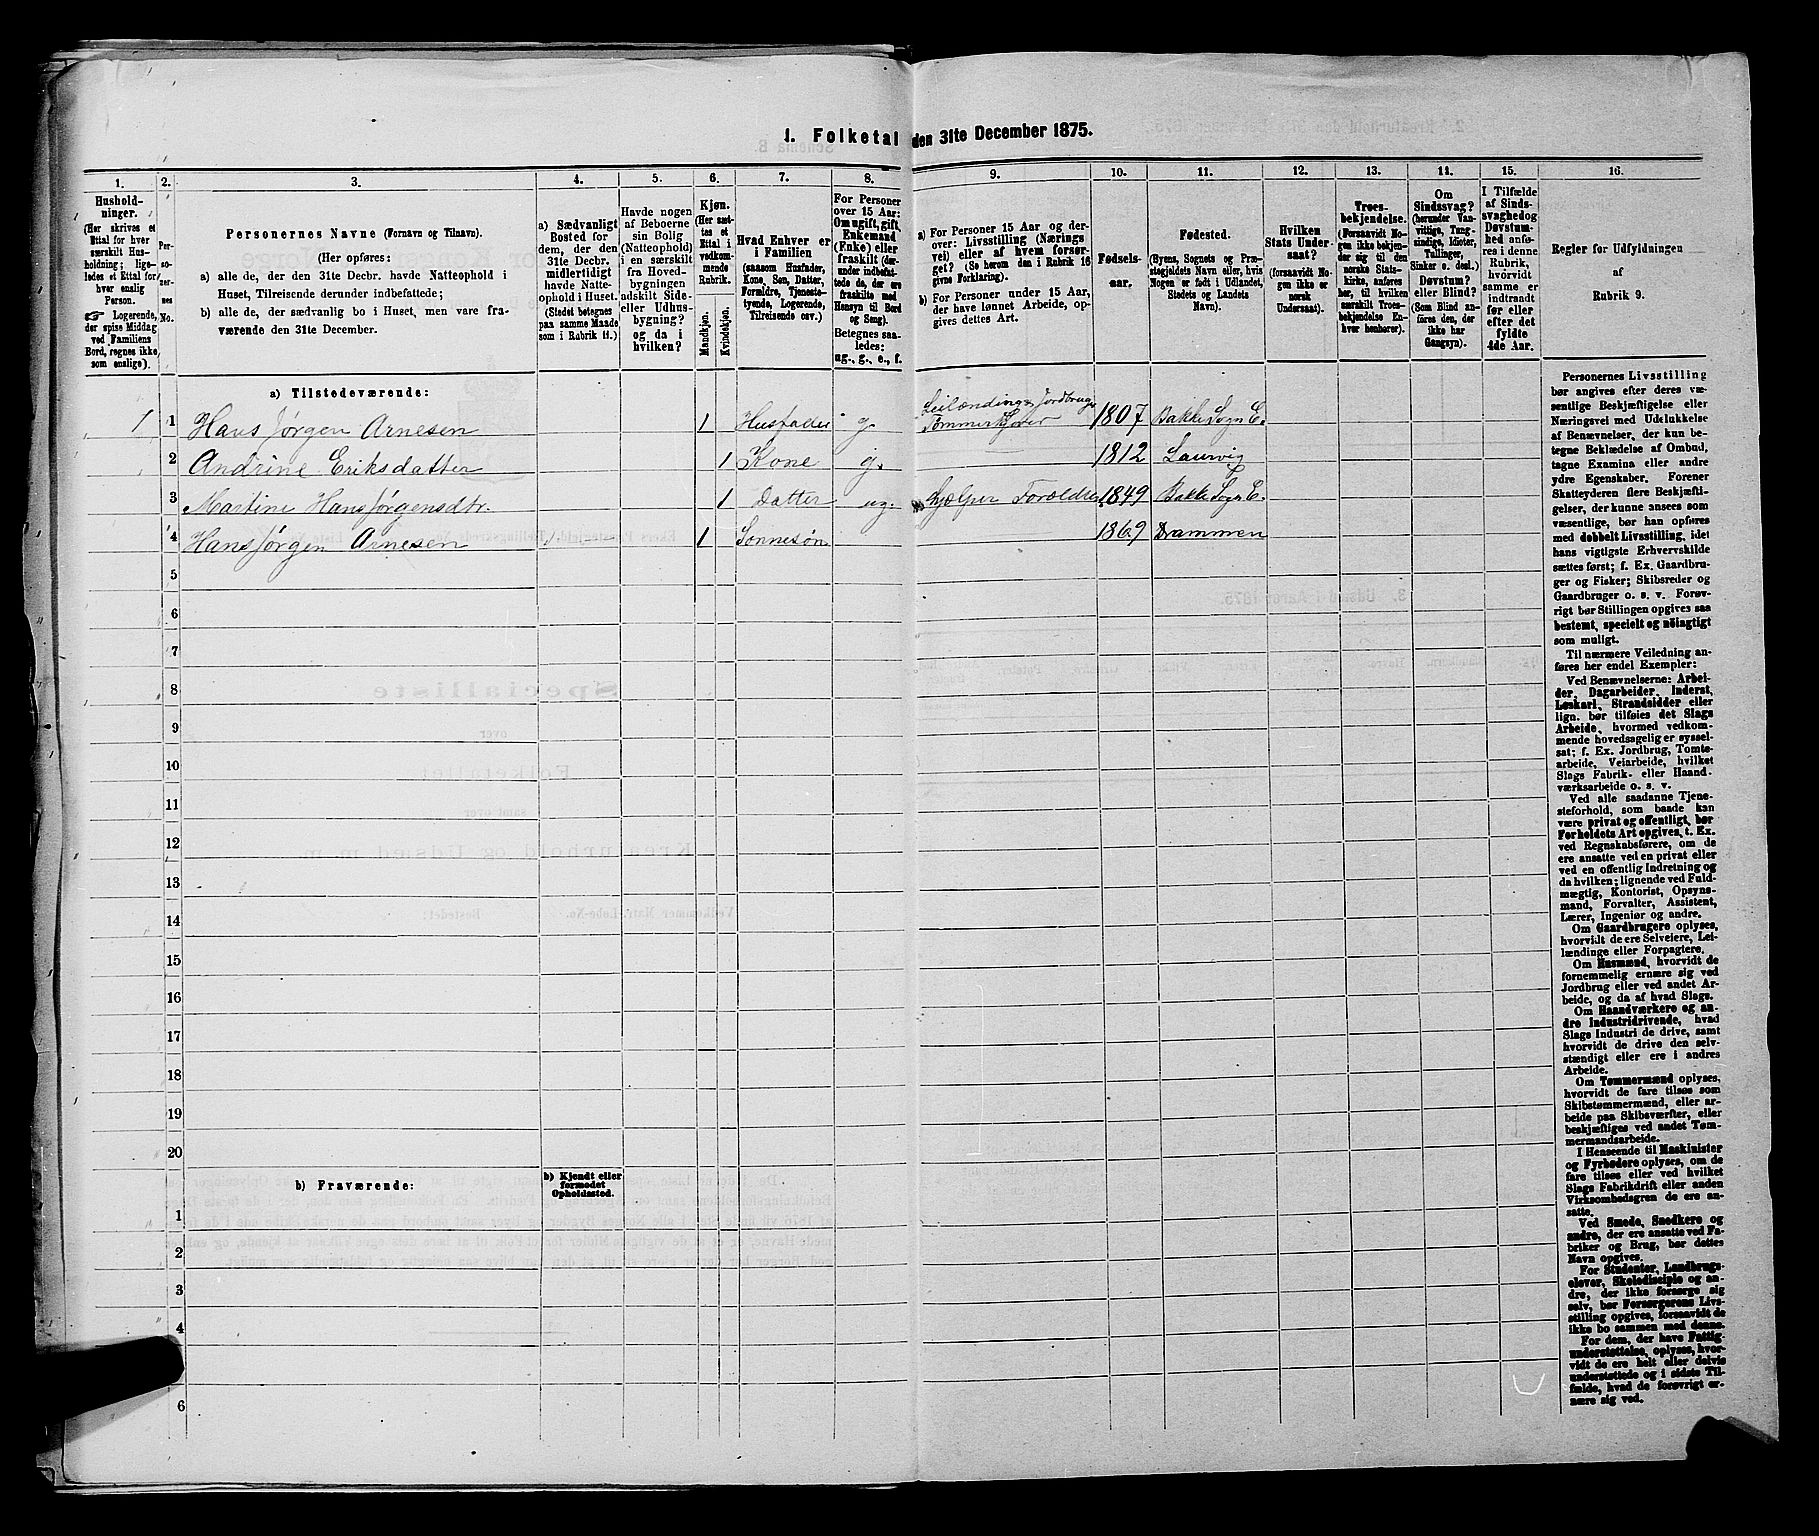 1. Folketal den 31te December 1875.
1. 2. 3. 4. 5. 6. 7. 8. 9. 10. 11. 12. 13. 14. 15. 16.
Hushold-
ninger.
(Her skrives et
Ettal for hver
særskilt Hus-
holdning; lige-
ledes et Ettal for
hver enslig
Person.
☛ Logerende,
der spise Middag
ved Familiens
Bord, regnes ikke
som enslige).
Per-
so-
ner-
nes
No.
Personernes Navne (Fornavn og Tilnavn).
(Her opføres:
a) alle de, der den 31te Decbr. havde Natteophold i
Huset, Tilreisende derunder indbefattede;
b) alle de, der sædvanlig bo i Huset, men vare fra-
værende den 31te December.
a) Sædvanligt
Bosted for
dem, der den
31te Decbr.
midlertidigt
havde Natte-
ophold i Huset.
(Stedet betegnes
paa samme Maade
som i Rubrik 11.)
Havde nogen
af Beboerne
sin Bolig
(Natteophold)
i en særskilt
fra Hoved-
bygningen
adskilt Side-
eller Udhus-
bygning?
og da i
hvilken?
Kjøn.
(Her sæt-
tes et
Ettal i
vedkom-
mende
Rubrik.
Mandkjøn.
Kvindekjøn.
Hvad Enhver er
i Familien
(saasom Husfader,
Kone, Søn, Datter,
Forældre, Tjeneste-
tyende, Logerende,
Tilreisende osv.)
For Personer
over 15 Aar:
Om ugift, gift,
Enkemand
(Enke) eller
fraskilt (der-
under indbefat-
tede de, der ere
fraskilte med
Hensyn til Bord
og Seng).
Betegnes saa-
ledes:
ug., g., e., f.
a) For Personer 15 Aar og der-
over: Livsstilling (Nærings
vei) eller af hvem forsør-
get? (Se herom den i Rubrik 16
givne Forklaring).
b) For Personer under 15 Aar,
der have lønnet Arbeide, op-
gives dettes Art.
Fødsels-
aar.
Fødested.
(Byens, Sognets og Præ-
stegjeldets Navn eller, hvis
Nogen er født i Udlandet,
Stedets og Landets
Navn).
Hvilken
Stats Under-
saat?
(forsaavidt No-
gen ikke er
norsk
Undersaat).
Troes-
bekjendelse.
(Forsaavidt No-
gen ikke bekjen-
der sig til den
norske Stats-
kirke, anføres
her, til hvilken
særskilt Troes-
bekjendelse En-
hver henhører).
Om
Sindssvag?
(herunder Van-
vittige, Tung-
sindige, Idioter,
Tullinger,
Sinker o. desl.)
Døvstum?
eller Blind?
(Som Blind an-
føres den, der
ikke har
Gangsyn).
I Tilfælde
af Sinds-
svaghed og
Døvstum-
hed anfø-
res i denne
Rubrik,
hvorvidt
samme er
indtraadt
før eller
efter det
fyldte
4de Aar.
Regler for Udfyldningen
af
Rubrik 9.
a) Tilstedeværende:
1 1 Hans Jørgen Arnesen 1 Husfader g. Leilænding, Jordbruger Tømmerkjører 1807 Bakke Sogn E.
2 Andrine Eriksdatter 1 Kone g. 1812 Laurvig
3 Martine Hans Jørgensdtr. 1 Datter ug. hjælper Forældre 1849 Bakke Sogn E.
4 Hans Jørgen Arnesen 1 Sønnesøn 1869 Drammen
5
6
7
8
9
10
11
12
13
14
15
16
17
18
19
20
b) Fraværende:
b) Kjendt eller
formodet
Opholdssted.
1
2
3
4
6
Personernes Livsstilling
bør angives efter deres væ-
sentlige Beskjæftigelse eller
Næringsvei med Udelukkelse
af Benævnelser, der kun be-
tegne Beklædelse af Ombud,
tagne Examina eller andre
ydre Egenskaber. Forener
Skatteyderen flere Beskjæfti-
gelser, der kunne ansees som
væsentlige, bør han opføres
med dobbelt Livsstilling, idet
hans vigtigste Erhvervskilde
sættes først; f. Ex. Gaardbru-
ger og Fisker; Skibsreder og
Gaardbruger o. s. v. Forøv-
rigt bør Stillingen opgives saa
bestemt, specielt og nøiagtigt
som muligt.
Til nærmere Veiledning an-
føres her endel Exempler:
Ved Benævnelserne: Arbei-
der, Dagarbeider, Inderst,
Løskarl, Strandsidder eller
lign. bør tilføies det Slags
Arbeide, hvormed vedkom-
mende hovedsagelig er syssel-
sat; f. Ex. Jordbrug, Tomte-
arbeide, Veiarbeide, hvilket
Slags Fabrik- eller Haand-
værksarbeide o. s. v.
Ved alle saadanne Tjene-
steforhold, som baade kan
være privat og offentligt, bør
Forholdets Art opgives, t. Ex.
ved Regnskabsførere, om de
ere ansatte ved en privat eller
ved en offentlig Indretning og
da hvilken; lignende ved Fuld-
mægtig, Kontorist, Opsyns-
mand, Forvalter, Assistent,
Lærer, Ingeniør og andre.
Om Gaardbrugere oplyses,
hvorvidt de ere Selveiere, Lei-
lændinge eller Forpagtere.
Om Husmænd, hvorvidt de
fornemmelig ernære sig ved
Jordbrug eller ved andet Ar-
beide, og da af hvad Slags.
Om Haandværkere og an-
dre Industridrivende, hvad
Slags Industri de drive, samt
hvorvidt de drive den selv-
stændigt eller ere i andres
Arbeide.
Om Tømmermænd oplyses,
hvorvidt de fare tilsøs som
Skibstømmermænd, eller ar-
beide paa Skibsværfter, eller
beskjæftiges ved andet Tøm-
mermandsarbeide.
I Henseende til Maskinister
og Fyrbødere oplyses, om de
fare tilsøs eller ved hvilket
Slags Fabrikdrift eller anden
Virksomhedsgren de ere an-
satte.
Ved Smede, Snedkere og
andre, der ere ansatte ved Fa-
briker og Brug, bør dettes
Navn opgives.
For Studenter, Landbrugs-
elever, Skoledisciple og an-
dre, der ikke forsørge sig
selv, bør Forsørgerens Livs-
stilling opgives, forsaavidt de
ikke bo sammen med denne.
For dem, der have Fattig-
understøttelse, oplyses, hvor-
vidt de ere helt eller delvis
understøttede og i sidste Til-
fælde, hvad de forøvrigt er-
nære sig ved.